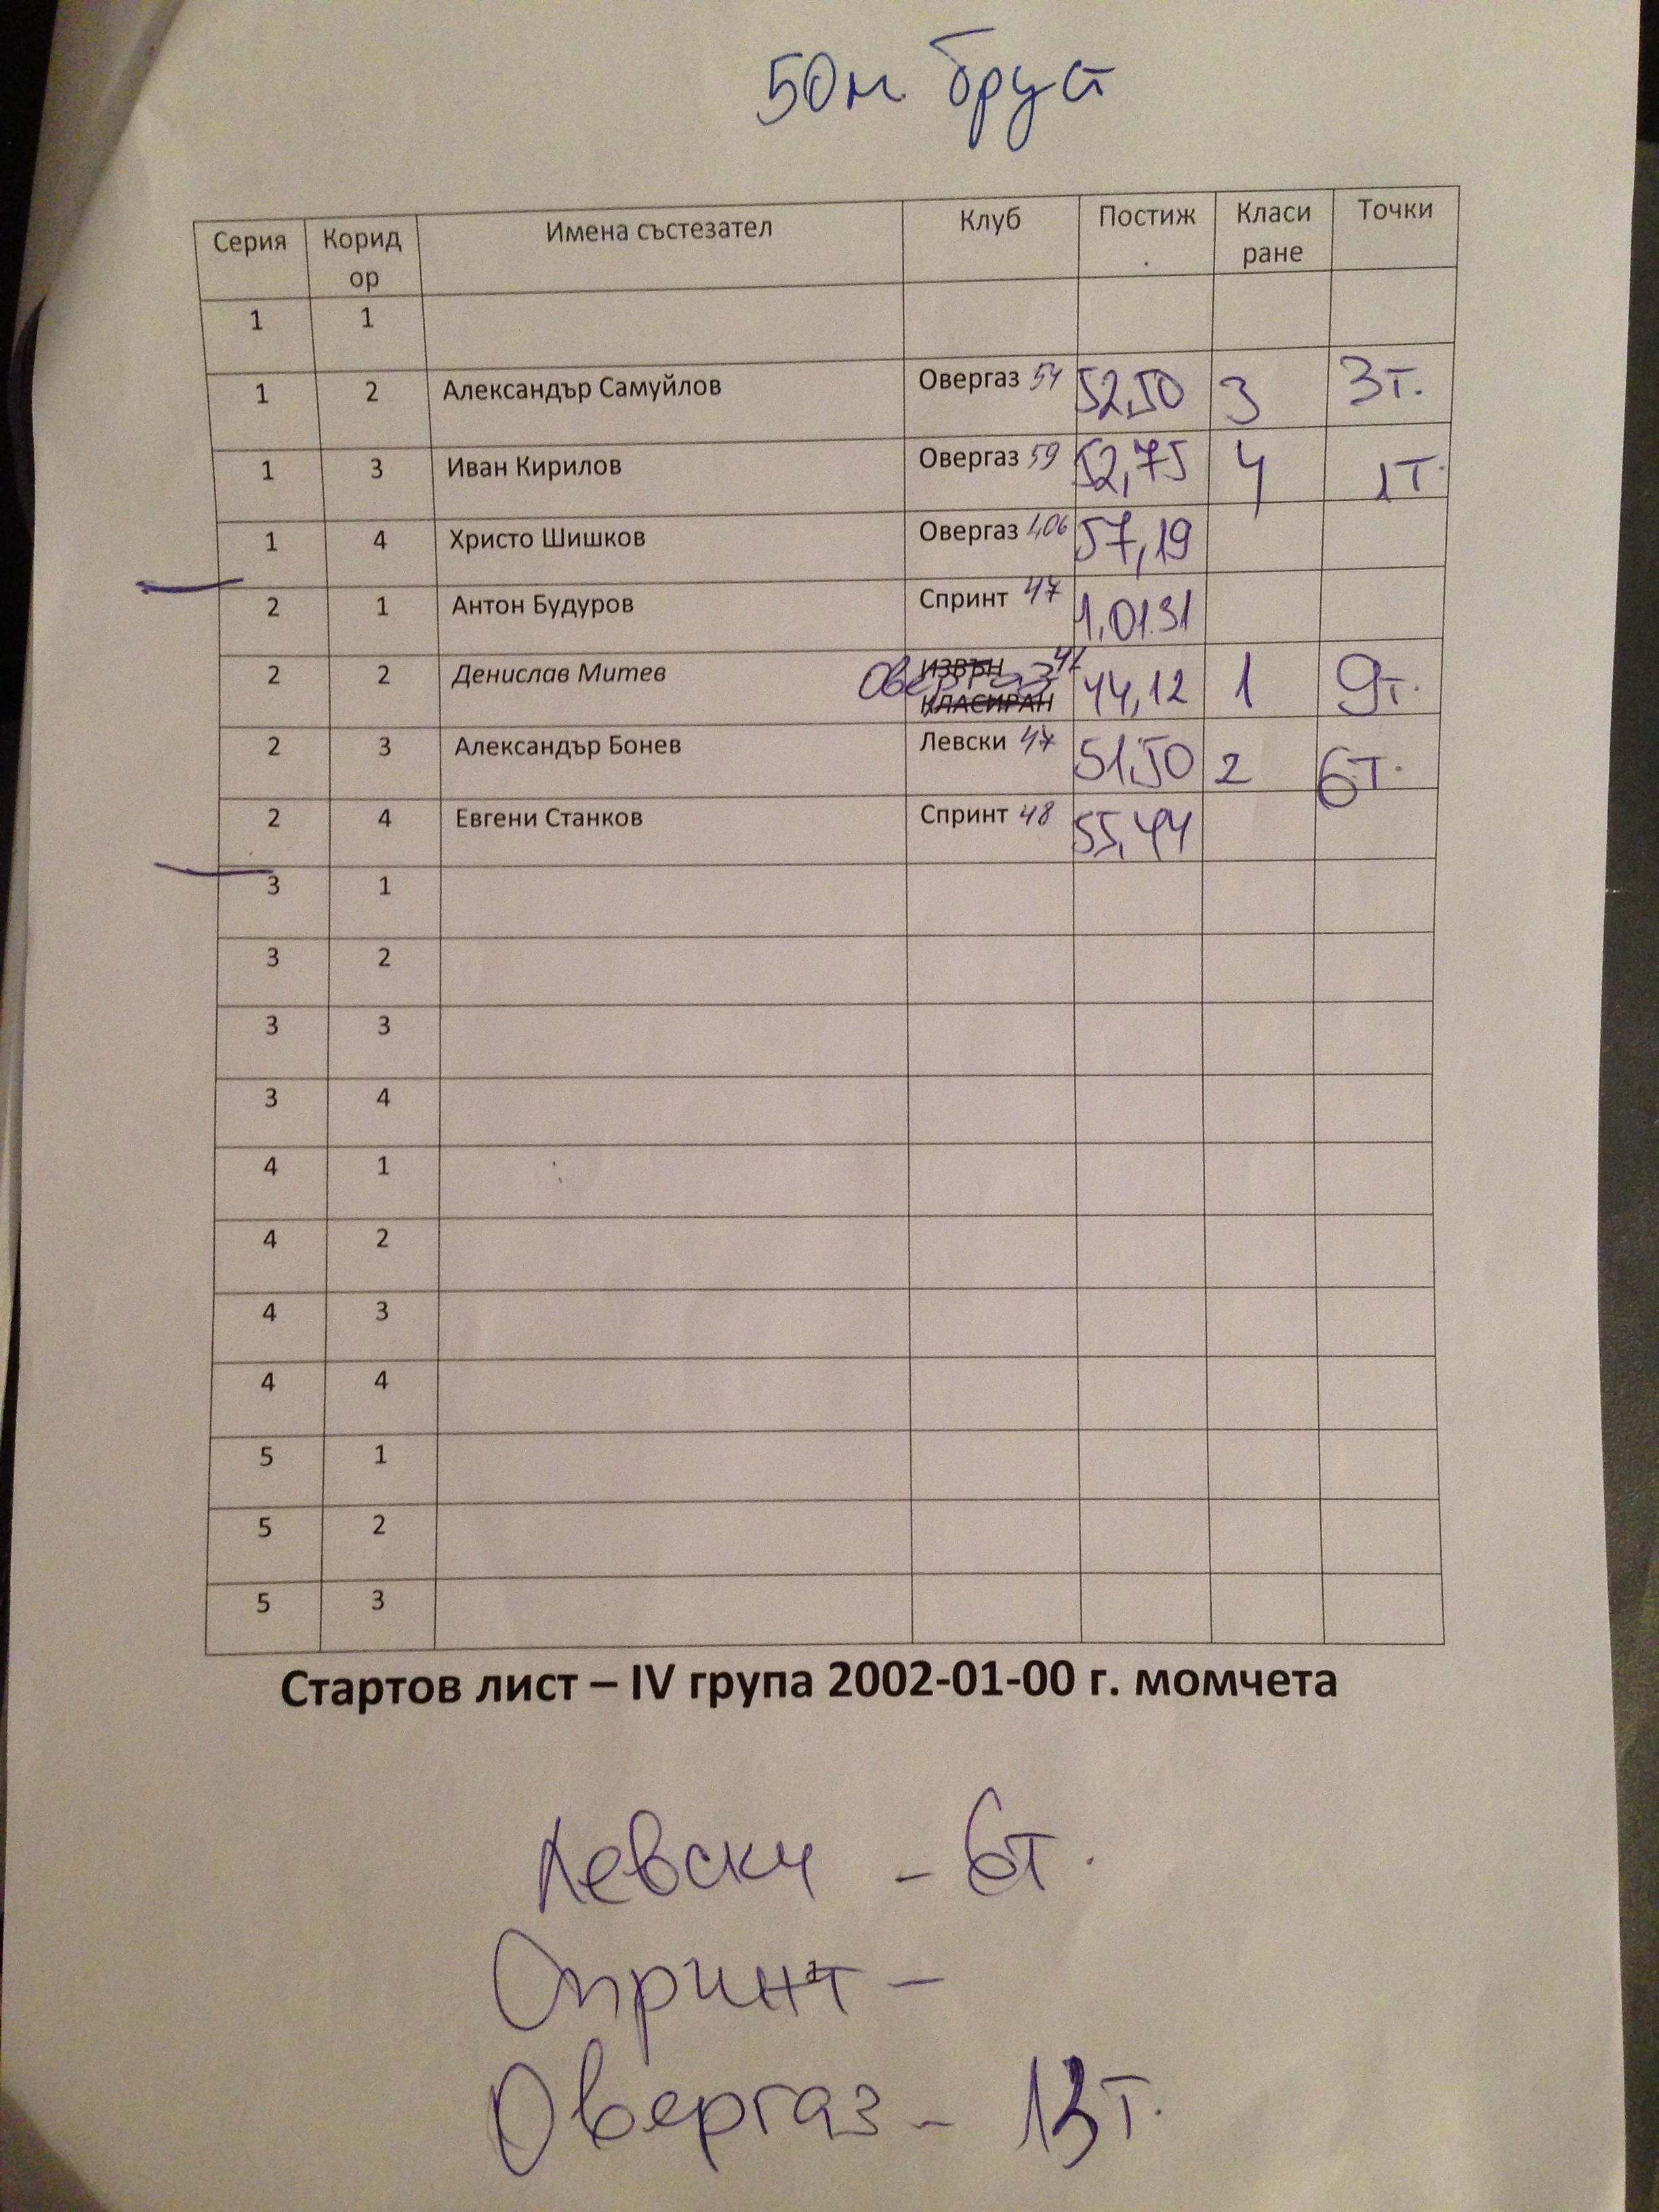 50м. бруст
Серия Коридор Имена състезател Клуб Постиж. Класиране Точки
1 1
1 2 Александър Самуйлов Овергаз 54 52,50 3 3т.
1 3 Иван Кирилов Овергаз 59 52,75 4 1т.
1 4 Христо Шишков Овергаз 1,06 57,19
2 1 Антон Будуров Спринт 47 1,01.31
2 2 Денислав Митев ИЗВЪН КЛАСИРАН Овергаз 44,12 1 9т.
2 3 Александър Бонев Левски 47 51,50 2 6т.
2 4 Евгени Станков Спринт 48 55,44
3 1
3 2
3 3
3 4
4 1
4 2
4 3
4 4
5 1
5 2
5 3
Стартов лист – IV група 2002-01-00 г. момчета
Левски - 6т.
Спринт -
Овергаз - 13т.